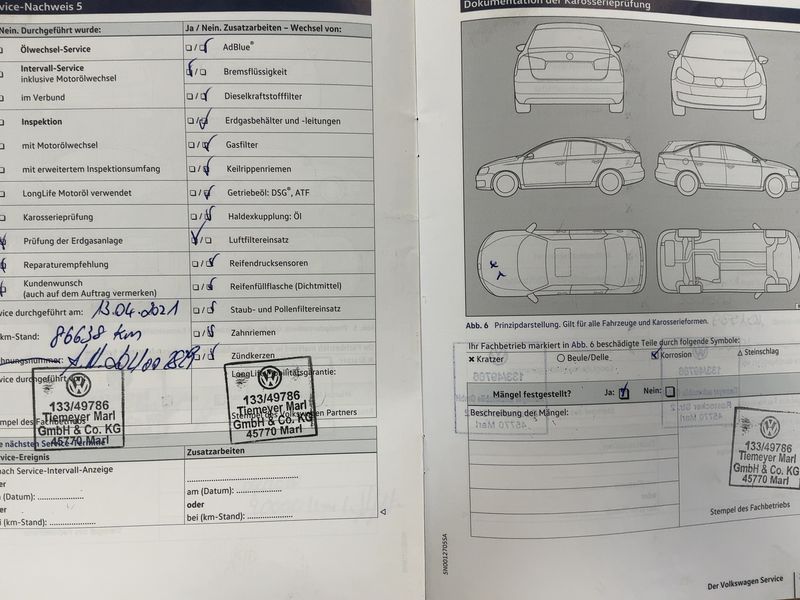 vice-Nachweis 5
Nein. Durchgeführt wurde:
Ölwechsel-Service
Intervall-Service
inklusive Motorölwechsel
im Verbund
Inspektion
mit Motorölwechsel
mit erweitertem Inspektionsumfang
LongLife Motoröl verwendet
Karosserieprüfung
Prüfung der Erdgasanlage
Reparaturempfehlung
Kundenwunsch
(auch auf dem Auftrag vermerken)
vice durchgeführt am: 13.04.2021
km-Stand: 86638 km
hnungsnummer:
vice durchgeführt
133/49786
Tiemeyer Marl
GmbH & Co. KG
45770 Marl
mpel des Fachbetriebs
e nächsten Service-Termine
vice-Ereignis
nach Service-Intervall-Anzeige
er
(Datum):
er
i (km-Stand):
Ja / Nein. Zusatzarbeiten – Wechsel von:
/ AdBlue®
/ Bremsflüssigkeit
/ Dieselkraftstofffilter
/ Erdgasbehälter und -leitungen
/ Gasfilter
/ Keilrippenriemen
/ Getriebeöl: DSG®, ATF
/ Haldexkupplung: Öl
/ Luftfiltereinsatz
/ Reifendrucksensoren
/ Reifenfüllflasche (Dichtmittel)
/ Staub- und Pollenfiltereinsatz
/ Zahnriemen
/ Zündkerzen
LongLife Mobilitätsgarantie:
133/49786
Tiemeyer Marl
GmbH & Co. KG
45770 Marl
Stempel des Volkswagen Partners
Zusatzarbeiten
am (Datum):
oder
bei (km-Stand):
Dokumentation der Karosserieprüfung
Abb. 6 Prinzipdarstellung. Gilt für alle Fahrzeuge und Karosserieformen.
Ihr Fachbetrieb markiert in Abb. 6 beschädigte Teile durch folgende Symbole:
Kratzer Beule/Delle Korrosion Steinschlag
Mängel festgestellt? Ja: Nein:
Beschreibung der Mängel:
133/49786
Tiemeyer Marl
GmbH & Co. KG
45770 Marl
Stempel des Fachbetriebs
5N0012705SA
Der Volkswagen Service